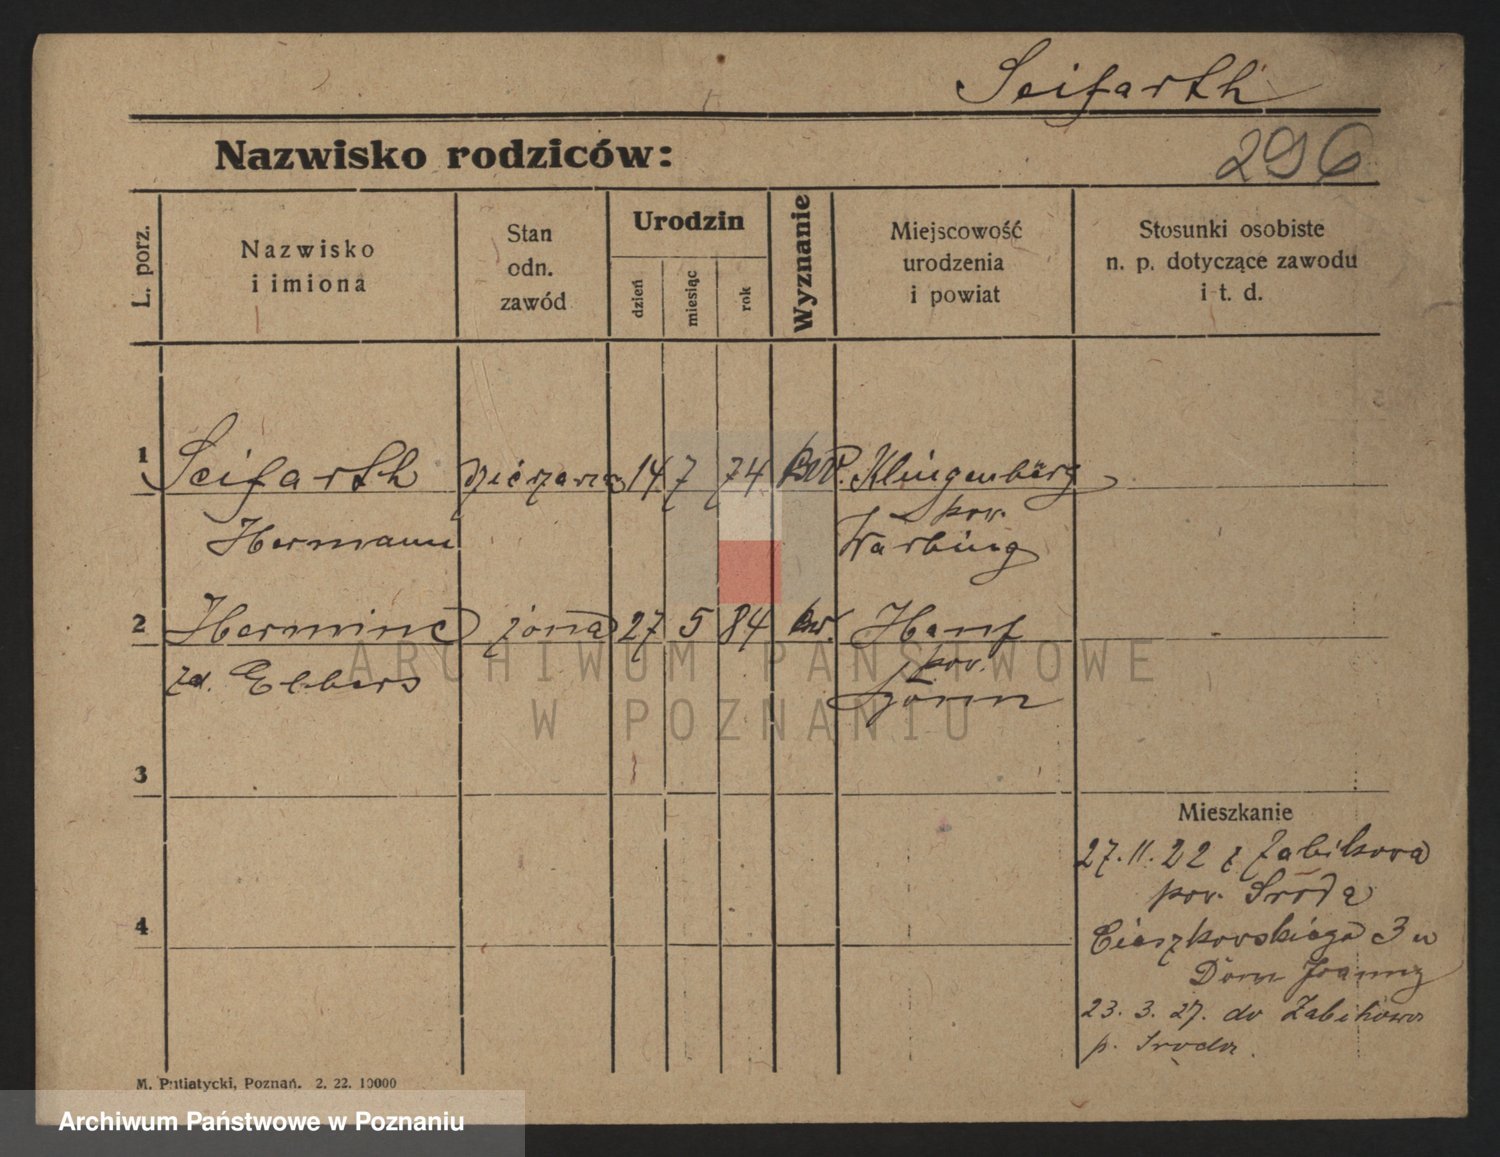 Seifarth
Nazwisko rodziców:
296
L. porz.
Nazwisko
i imiona
Stan
odn.
zawód
Urodzin
dzień
miesiąc
rok
Wyznanie
Miejscowość
urodzenia
i powiat
Stosunki osobiste
n. p. dotyczące zawodu
i t. d.
1 Seifarth 14 7 74 Klingenburg
Hermann pow.
Warburg
2 Hermine żona 27 5 84 ew. Hanf
zd. Ebbers pow.
3
Mieszkanie
27.11.22 z Żabikowa
pow. Środa
4
Cieszkowskiego 3 u
Dom Joanny
23. 3. 27. do Żabikowa
p. Sroda.
M. Putiatycki, Poznań. 2. 22. 10000
ARCHIWUM PAŃSTWOWE
W POZNANIU
Archiwum Państwowe w Poznaniu